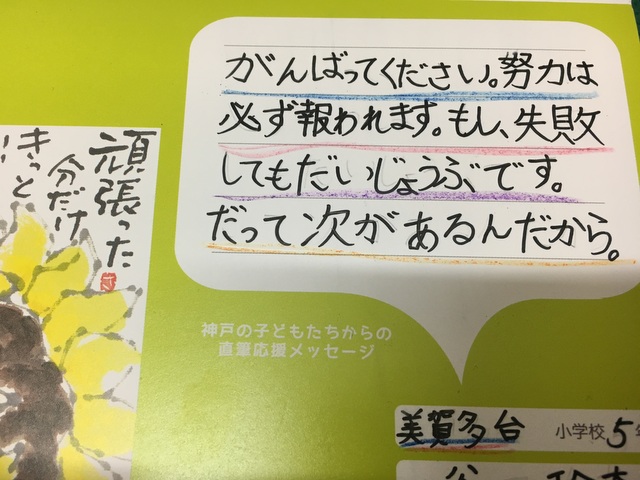 がんばってください。努力は
必ず報われます。もし、失敗
してもだいじょうぶです。
だって次があるんだから。
神戸の子どもたちからの
直筆応援メッセージ
美賀多台 小学校 5年
頑張った
分だけ
きっと